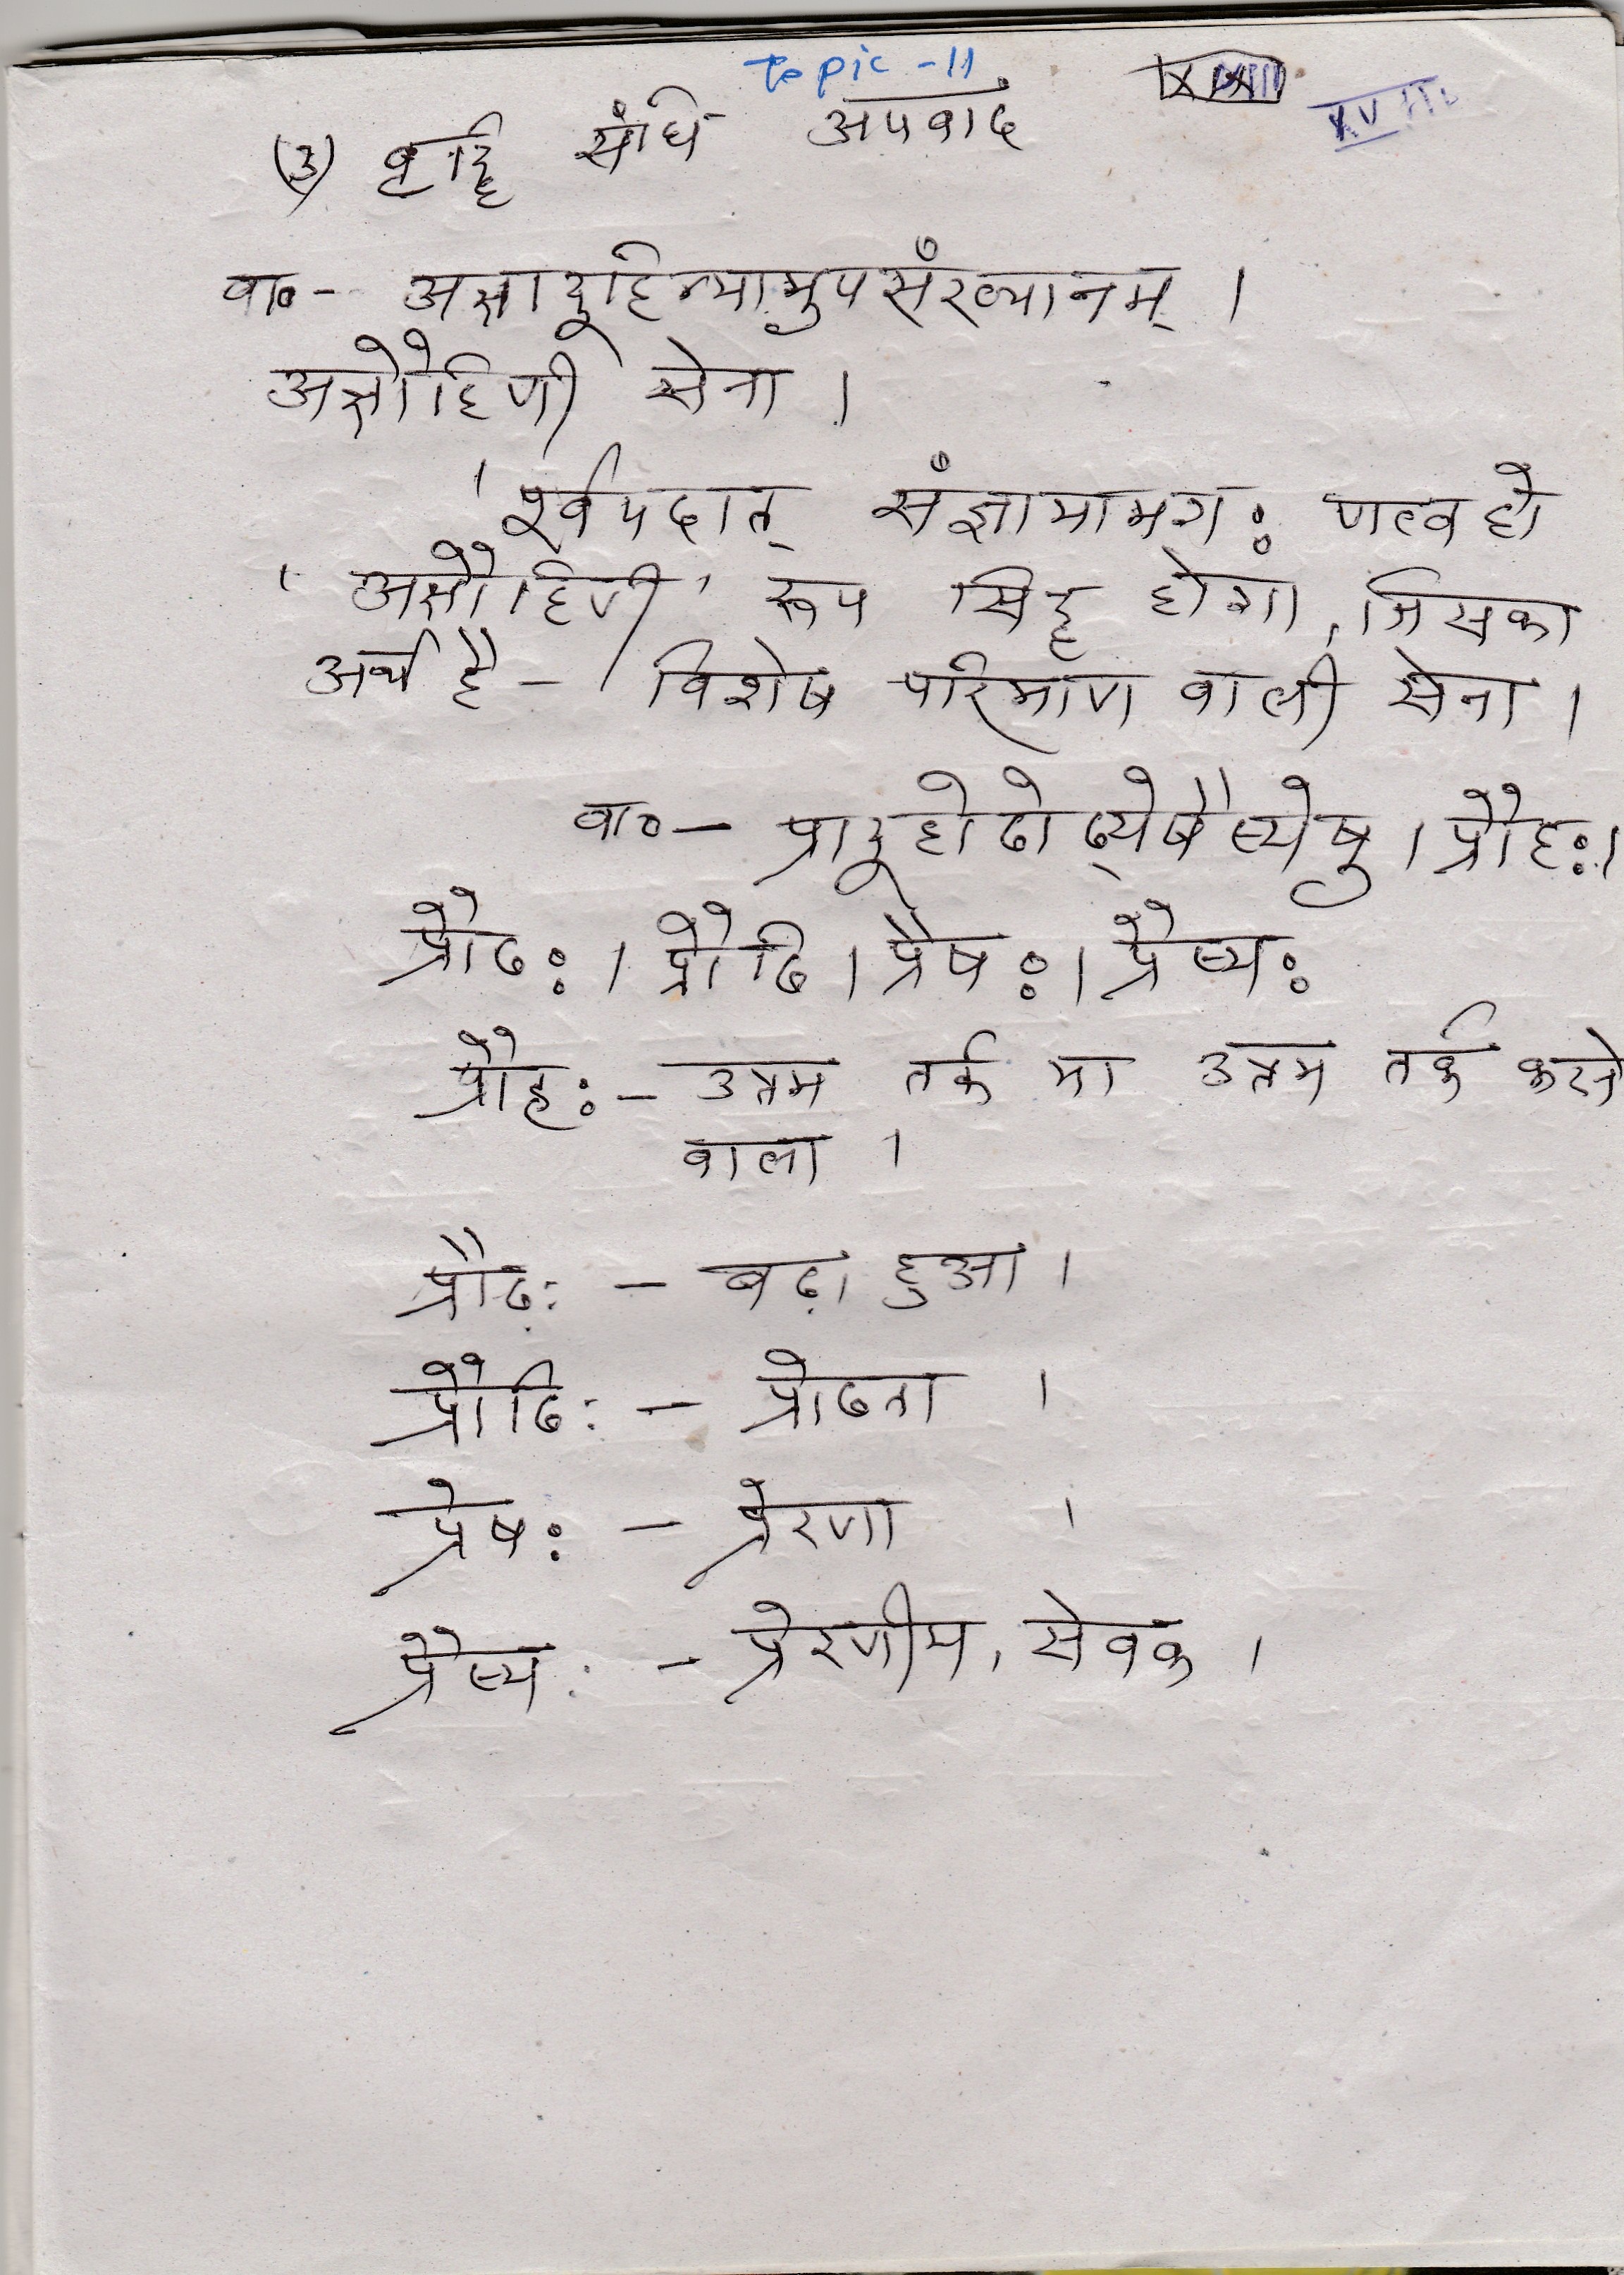 Topic - 11
(3) वृद्धि संधि अपवाद
XVIII
वा० - अक्षादूहिन्यामुपसंख्यानम् ।
अक्षौहिणी सेना ।
' पूर्वपदात् संज्ञायामगः णत्व हो
' अक्षौहिणी ' रूप सिद्ध होगा, जिसका
अर्थ है - विशेष परिमाण वाली सेना ।
वा० - प्रादूहोढोढ्येषैष्येषु । प्रौहः ।
प्रौढः । प्रौढि । प्रैषः । प्रैष्यः
प्रौहः - उत्तम तर्क या उत्तम तर्क करने
वाला ।
प्रौढः - बढ़ा हुआ ।
प्रौढिः - प्रोढता ।
प्रेषः - प्रेरणा ।
प्रैष्यः - प्रेरणीय, सेवक ।